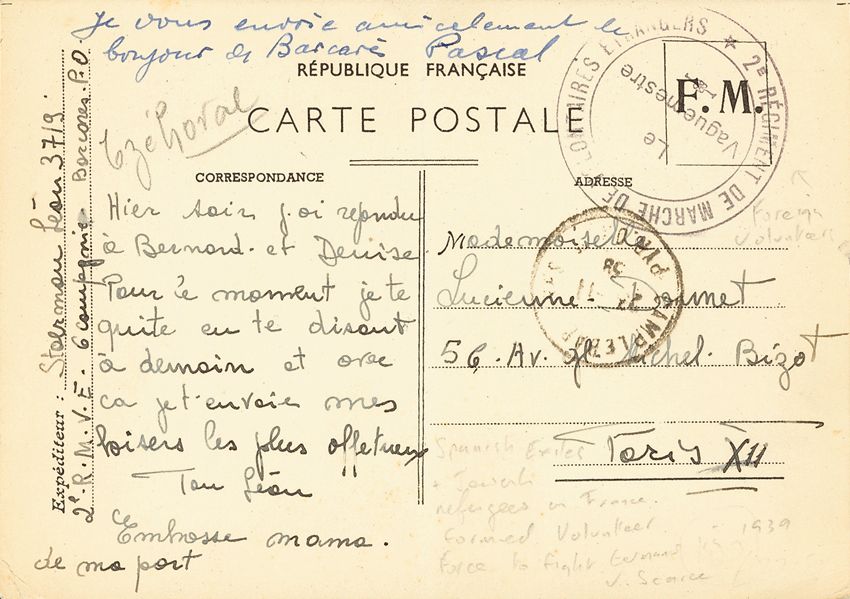 Je vous envoie amicalement le
bonjour de Barcarès Pascal
RÉPUBLIQUE FRANÇAISE
CARTE POSTALE
F. M.
2E RÉGIMENT DE MARCHE DE VOLONTAIRES ÉTRANGERS
Le
Vaguemestre
Expéditeur : Léon 3719
2e. R. M. V. E. 6 compagnie Barcares. P.O.
CORRESPONDANCE
Hier soir j'ai repondu
à Bernard et Denise
Pour le moment je te
quite en te disant
à demain et avec
ca je t'envoie mes
baisers les plus affetueux
Ton Léon
Embrasse mama.
de ma part
ADRESSE
Mademoiselle
Lucienne
56. Av. Gl Michel. Bizot
Paris XII
Foreign
Volunteers
Spanish Exiles
+ Jewish
refugees in France.
Formed Volunteer
Force to fight Germans
V. Scarce
1939